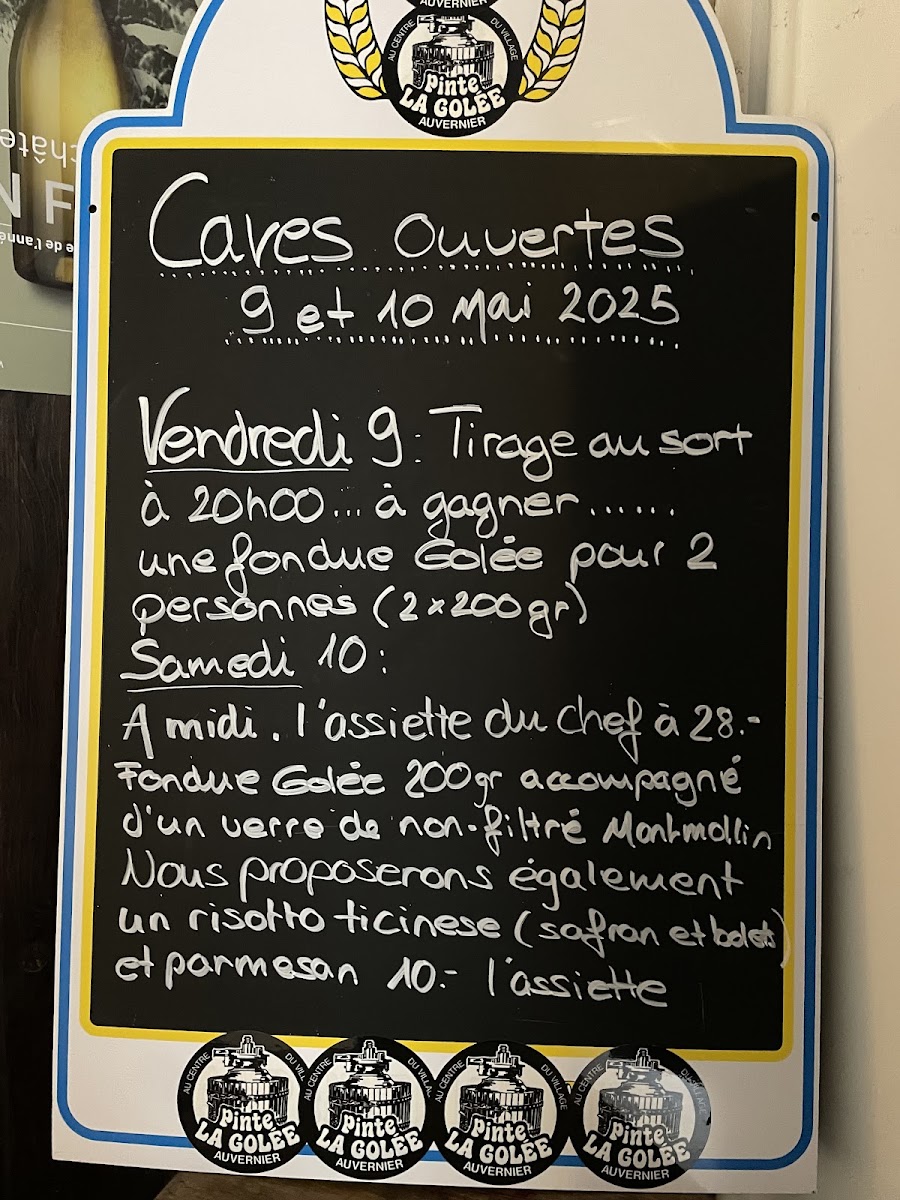 AUVERNIER
AU CENTRE DU VILLAGE
Pinte
LA GOLÉE
AUVERNIER
châte
N F
e de l'anné
Caves ouvertes
9 et 10 Mai 2025
Vendredi 9 : Tirage au sort
à 20h00... à gagner......
une fondue Golée pour 2
personnes (2x200gr)
Samedi 10 :
A midi. l'assiette du chef à 28.-
Fondue Golée 200gr accompagné
d'un verre de non-filtré Montmollin
Nous proposerons également
un risotto ticinese (safran et bolets)
et parmesan 10.- l'assiette
AU CENTRE DU VILL
Pinte
LA GOLÉE
AUVERNIER
AU CENTRE DU VILLAG
Pinte
LA GOLÉE
AUVERNIER
AU CENTRE DU VILLAGE
Pinte
LA GOLÉE
AUVERNIER
AU CENTRE
Pinte
LA GOLÉE
AUVERNIER